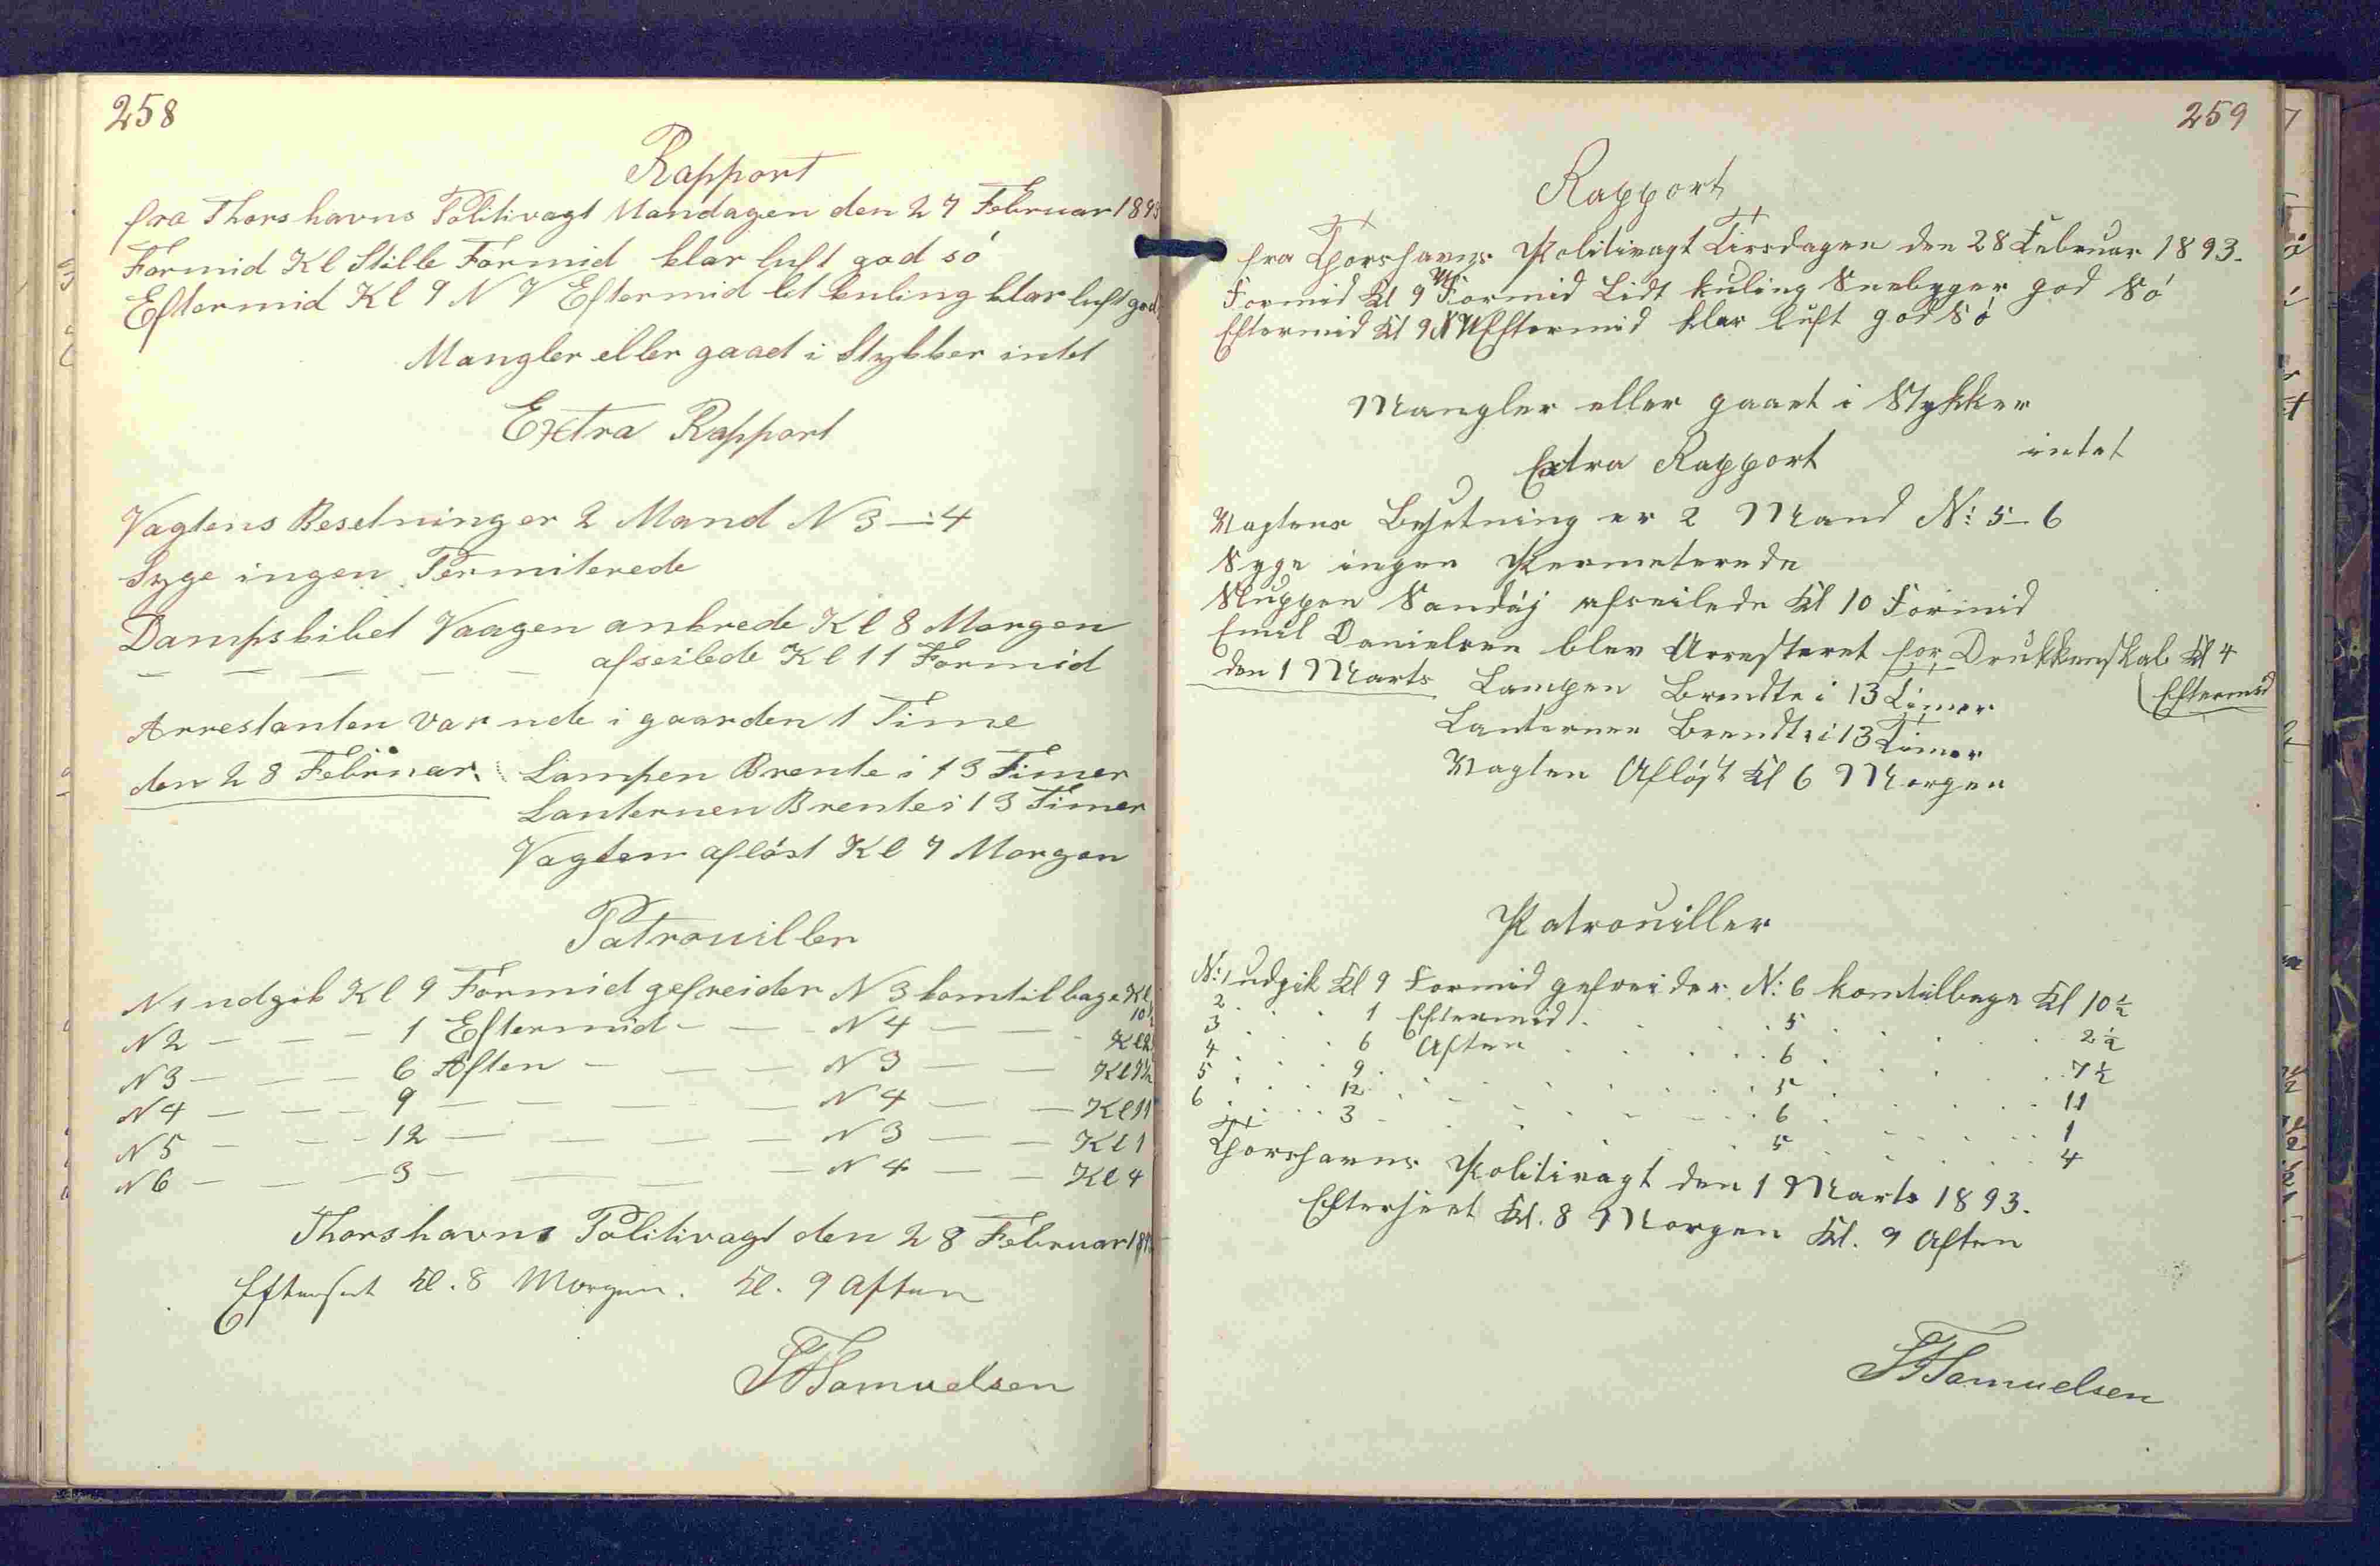 258
Rapport
fra Thorshavns Politivagt Mandagen den 27 Februar 1893
Formid Kl Stille Formid klar luft god só
Eftermid Kl 9 N V Eftermid let kuling klar luft god
Mangler eller gaaet i Stykker intet
Extra Rapport
Vagtens Besetning er 2 Mand N 3 — 4
Syge ingen Permiterede
Dampskibet Vaagen ankrede Kl 8 Morgen
— — — — — afseilede Kl 11 Formid
Arrestanten var ude i gaarden 1 Time
den 28 Februar. Lampen Brente i 13 Timer
Lanternen Brente i 13 Timer
Vagten aflóst Kl 7 Morgen
Patrouiller
N 1 udgik Kl 9 Formid gefreider N 3 kom tilbage Kl 10½
N 2 — — — 1 Eftermid — — N 4 — — Kl 2½
N 3 — — — 6 Aften — — — N 3 — — Kl 7½
N 4 — — — 9 — — — — N 4 — — Kl 11
N 5 — — — 12 — — — — N 3 — — Kl 1
N 6 — — — 3 — — — — N 4 — — Kl 4
Thorshavns Politivagt den 28 Februar 1893
Efterseet Kl. 8 Morgen. Kl. 9 Aften
Samuelsen
259
Rapport
fra Thorshavns Politivagt Tirsdagen den 28 Februar 1893.
Formid Kl 9 Formid Lidt kuling Sneebyger god Só
Eftermid Kl 9 Eftermid klar luft god Só
Mangler eller gaaet i Stykker
intet
Extra Rapport
Vagtens Besetning er 2 Mand N: 5 — 6
Syge ingen Permeterede
Sluppen Sandój afseilede Kl 10 Formid
Emil Danielsen blev Arresteret for Drukkenskab Kl 4
Eftermid
den 1 Marts Lampen Brendte i 13 Timer
Lanternen Brendte i 13 Timer
Vagten Aflóst Kl 6 Morgen
Patrouiller
N: 1 udgik Kl 9 Formid gefreider N: 6 kom tilbage Kl 10½
2 . . . 1 Eftermid . . . 5 . . . 2½
3 . . . 6 Aften . . . 6 . . . 7½
4 . . . 9 . . . 5 . . . 11
5 . . . 12 . . . 6 . . . 1
6 . . . 3 . . . 5 . . . 4
Thorshavns Politivagt den 1 Marts 1893.
Efterseet Kl. 8 Morgen Kl. 9 Aften
Samuelsen